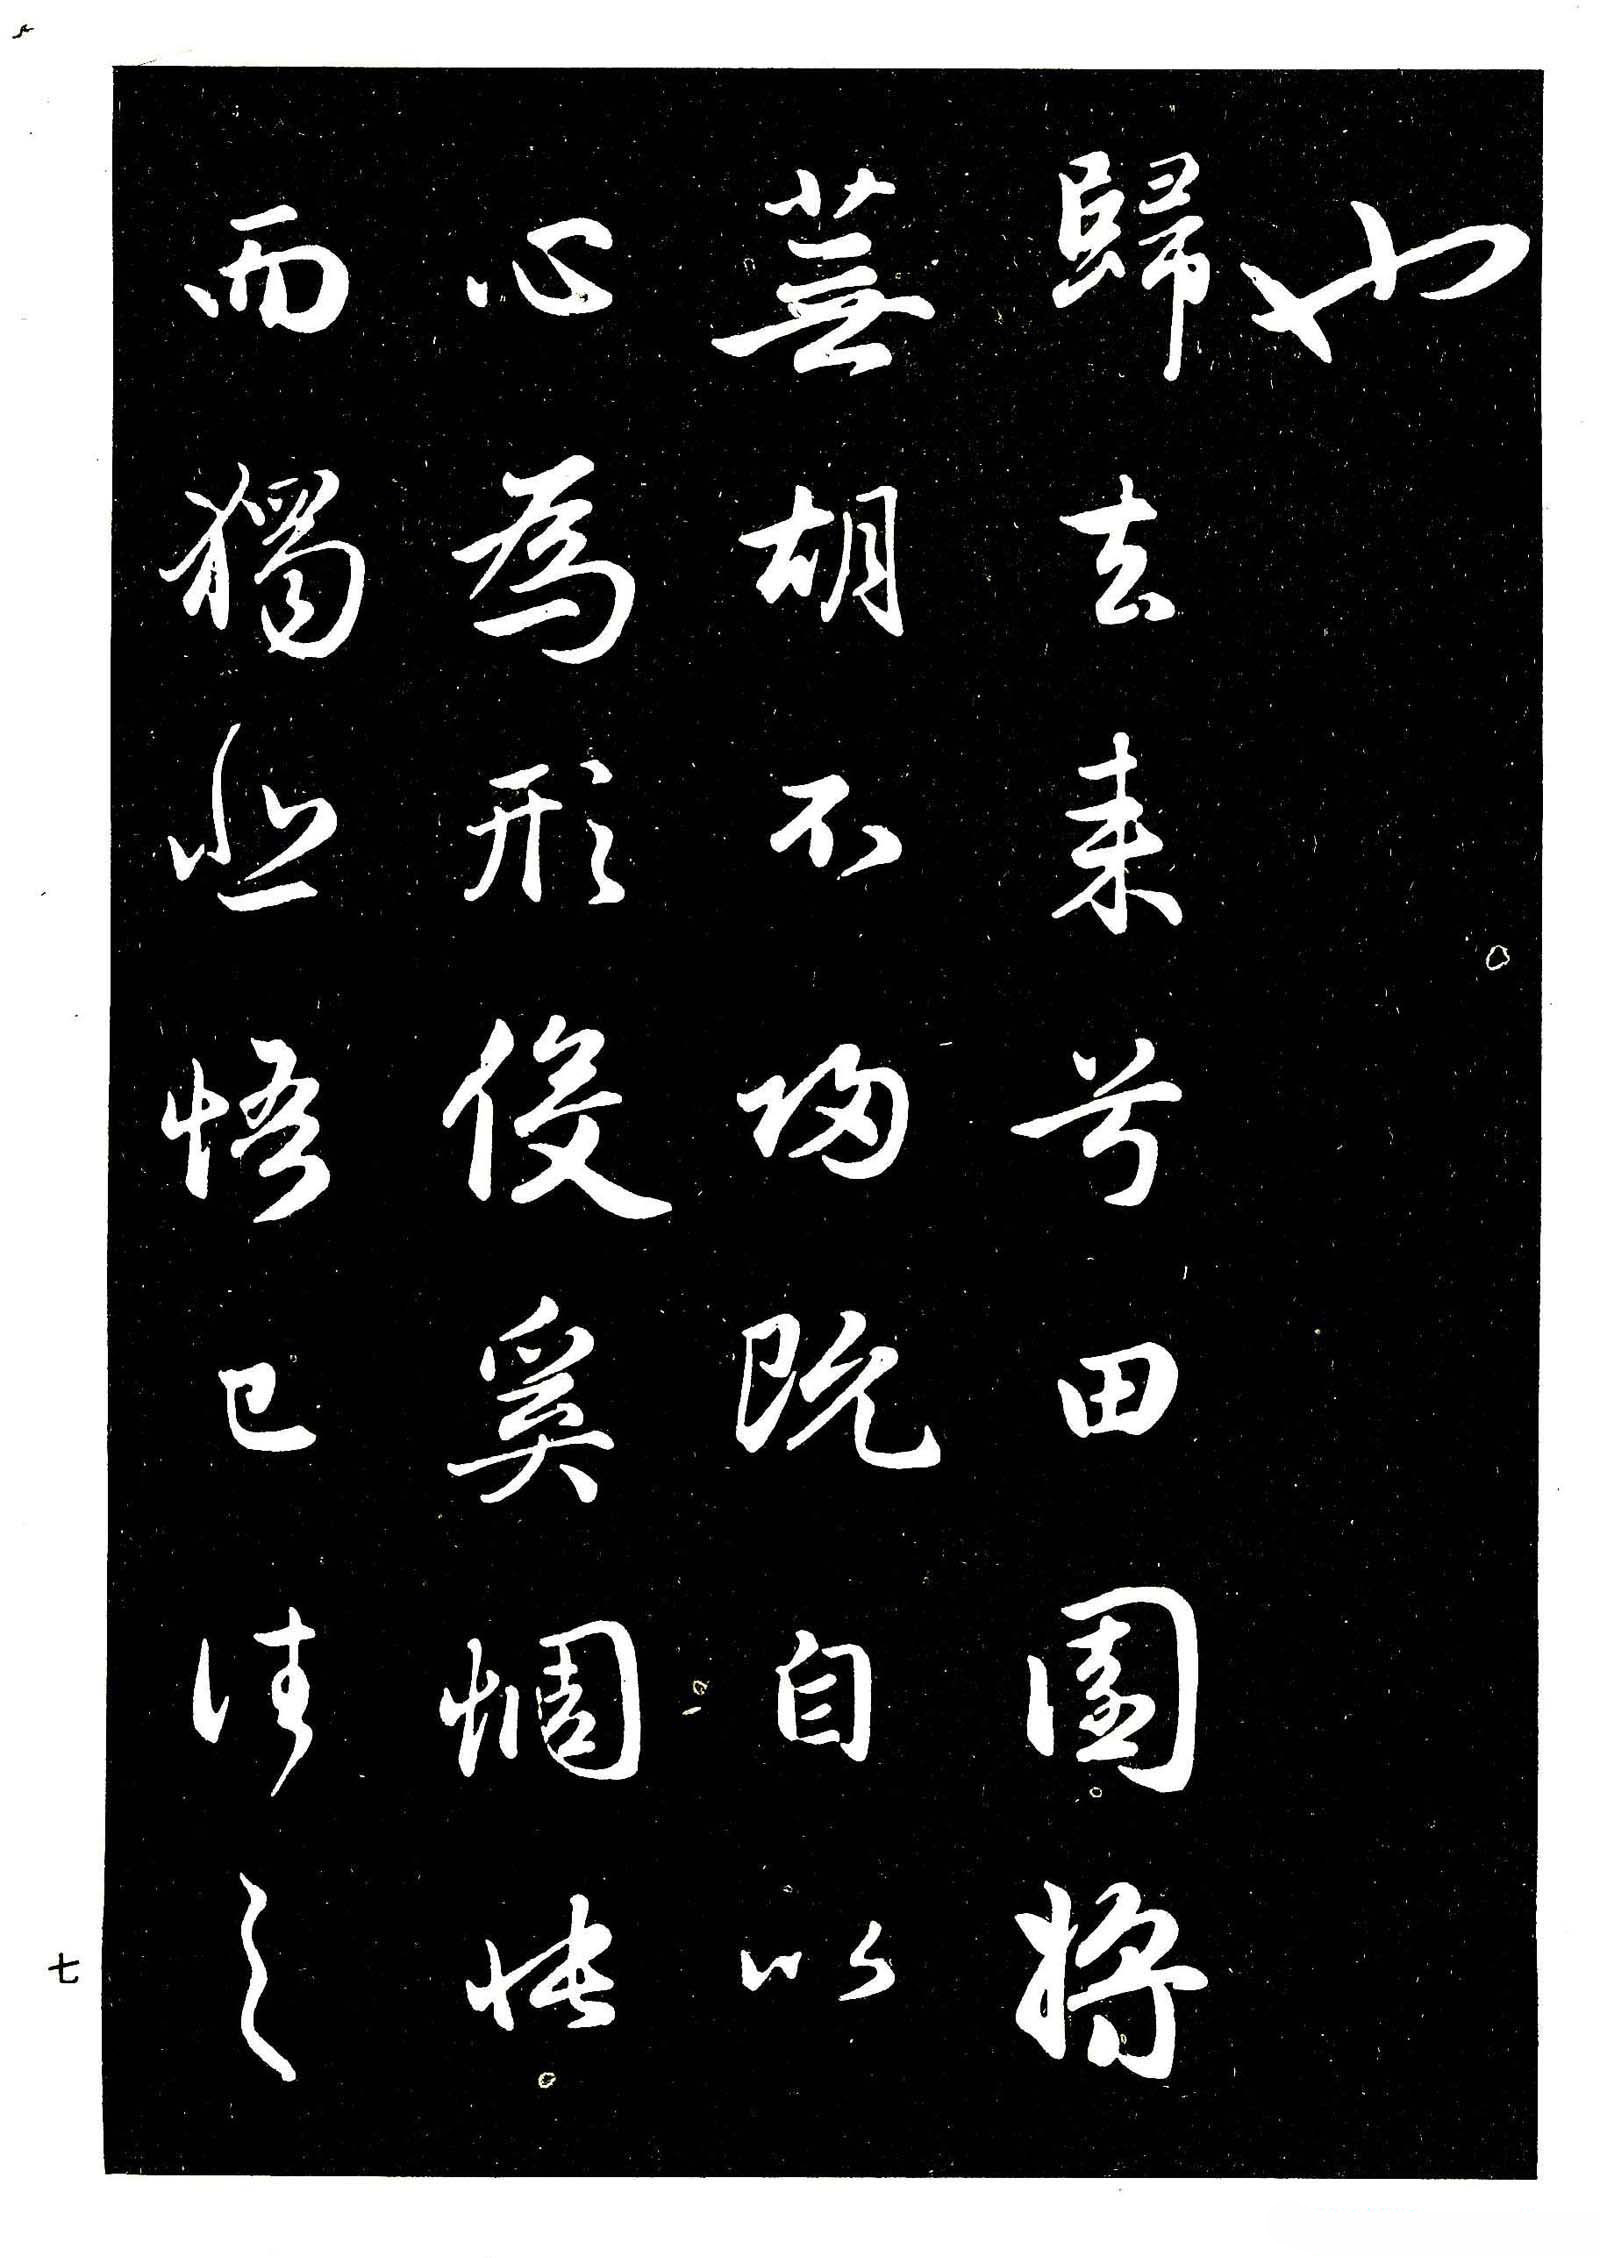 也
歸去来兮田園将
蕪胡不歸既自以
心為形役奚惆悵
而獨悲悟已往之
七